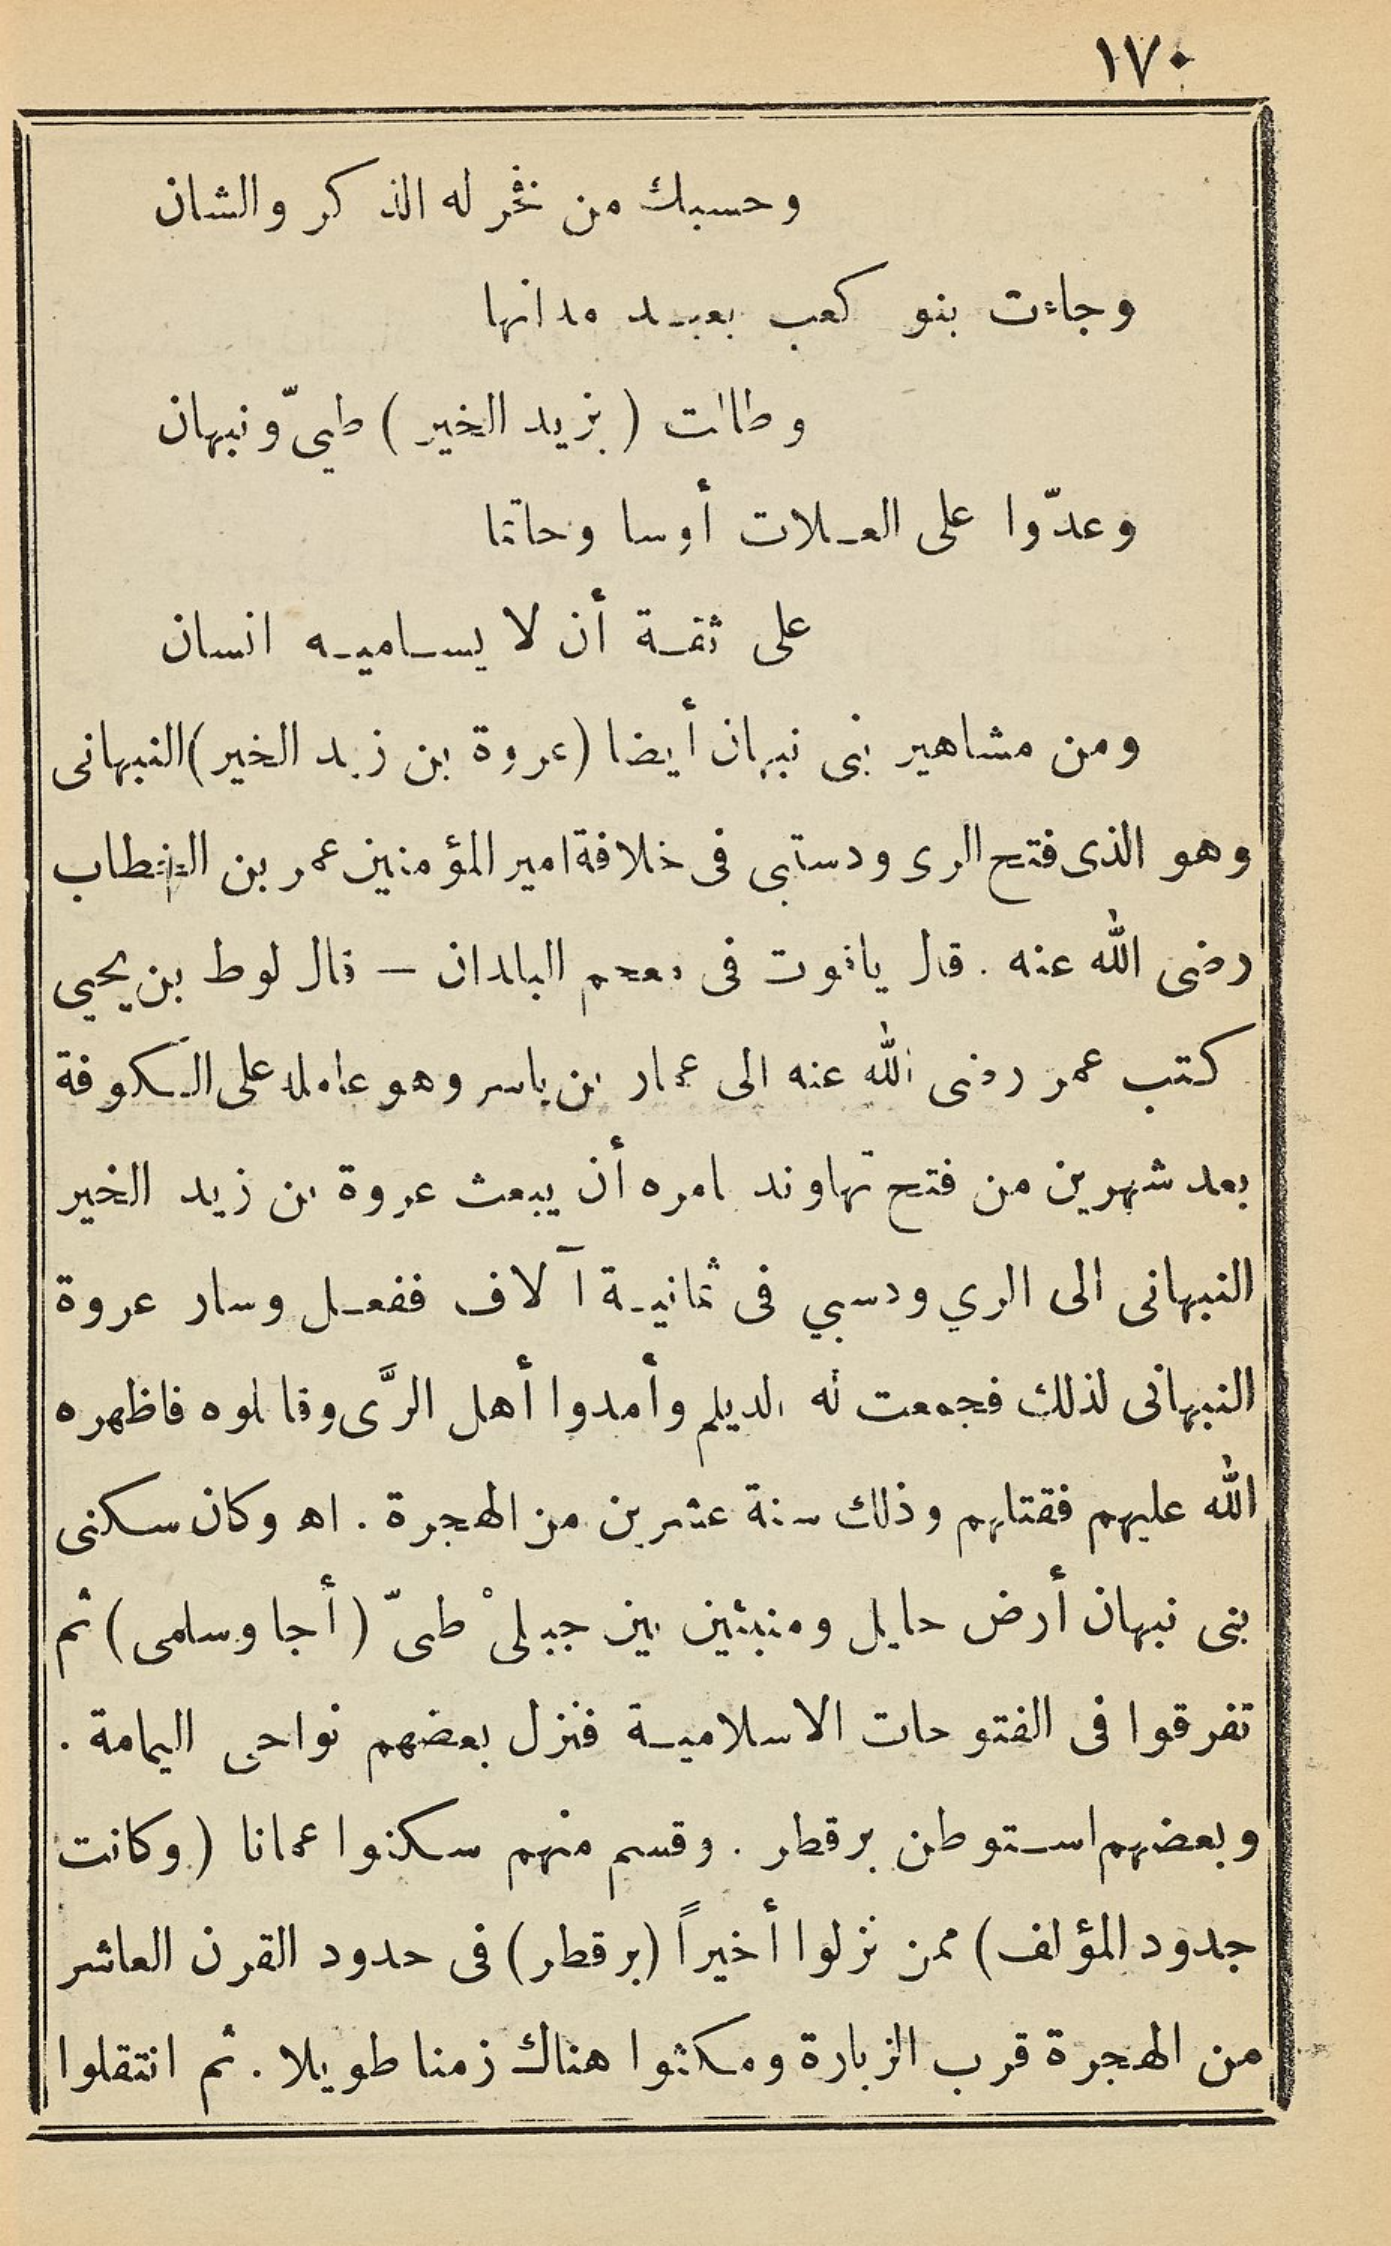 ١٧٠
وحسبك من فخر له الذكر والشان
وجاءت بنو كعب بعبد مدانها
وطالت (بزيد الخير) طيّ ونبهان
وعدّوا على العلات أوسا وحاتما
على ثقة أن لا يساميه انسان
ومن مشاهير بنى نبهان أيضا (عروة بن زيد الخير) النبهانى
وهو الذى فتح الرى ودستبى فى خلافة امير المؤمنين عمر بن الخطاب
رضى الله عنه . قال ياقوت فى معجم البلدان — قال لوط بن يحيي
كتب عمر رضى الله عنه الى عمار بن ياسر وهو عامله على الكوفة
بعد شهرين من فتح نهاوند يامره أن يبعث عروة بن زيد الخير
النبهانى الى الري ودسبي فى ثمانية آلاف ففعل وسار عروة
النبهانى لذلك فجمعت له الديلم وأمدوا أهل الرَّى وقاتلوه فاظهره
الله عليهم فقتلهم وذلك سنة عشرين من الهجرة . اه وكان سكنى
بنى نبهان أرض حايل ومنبثين بين جبلىْ طىّ (أجا وسلمى) ثم
تفرقوا فى الفتوحات الاسلامية فنزل بعضهم نواحى اليمامة .
وبعضهم استوطن بر قطر . وقسم منهم سكنوا عمانا (وكانت
جدود المؤلف) ممن نزلوا أخيراً (بر قطر) فى حدود القرن العاشر
من الهجرة قرب الزبارة ومكثوا هناك زمنا طويلا . ثم انتقلوا